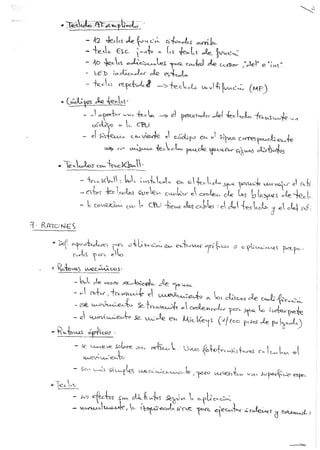 • Teclado AT ampliado:
- 12 teclas de función situadas arriba
- tecla ESC junto a las teclas de función
- 10 teclas adicionales para control de cursor, "del" e "ins"
- LED indicador de estado
- teclas repetidas → teclado multifunción (MF)
• Códigos de teclas:
- al apretar una tecla → el procesador del teclado transmite un
código a la CPU
- el sistema convierte el código en el signo correspondiente
⇒ un mismo teclado puede generar signos distintos
• Teclados con trackball:
- trackball: bola instalada en el teclado que permite manejar el
- estos teclados suelen cambiar el orden de los bloques de tecl
- la conexión con la CPU tiene dos cables: el del teclado y el del
7- RATONES
• Def: para utilización en entornos gráficos o aplicaciones prepa-
radas para ello
• Ratones mecánicos:
- bola de acero recubierta de goma
- al rotar, transmite el movimiento a los discos de codificación
- ese movimiento se transmite al ordenador para que lo interprete
- el movimiento se mide en Mickeys (1/100 parte de pulgada)
• Ratones ópticos:
- se mueve sobre una retícula. Unos fototransistores calculan el
movimiento
- son más simples mecánicamente, pero necesitan una superficie espe
• Teclas:
- sus efectos son distintos según la aplicación
- normalmente, la izquierda sirve para ejecutar órdenes y comandos